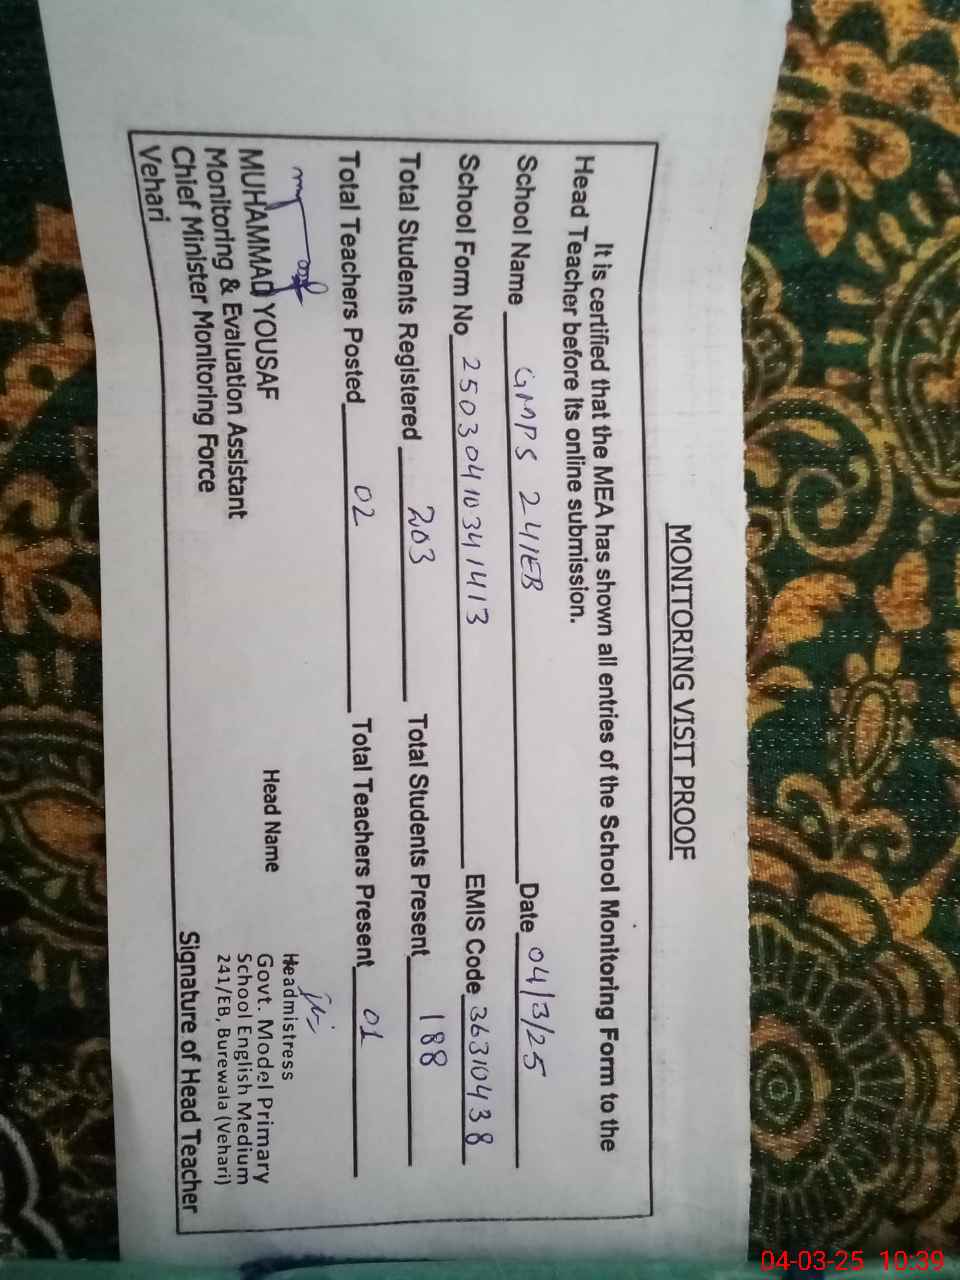 MONITORING VISIT PROOF
It is certified that the MEA has shown all entries of the School Monitoring Form to the
Head Teacher before its online submission.
School Name GMPS 241EB Date 04/3/25
School Form No 2503041034 1413 EMIS Code 36310438
Total Students Registered 203 Total Students Present 188
Total Teachers Posted 02 Total Teachers Present 01
MUHAMMAD YOUSAF
Monitoring & Evaluation Assistant
Chief Minister Monitoring Force
Vehari
Head Name
Headmistress
Govt. Model Primary
School English Medium
241/EB, Burewala (Vehari)
Signature of Head Teacher
04-03-25 10:39